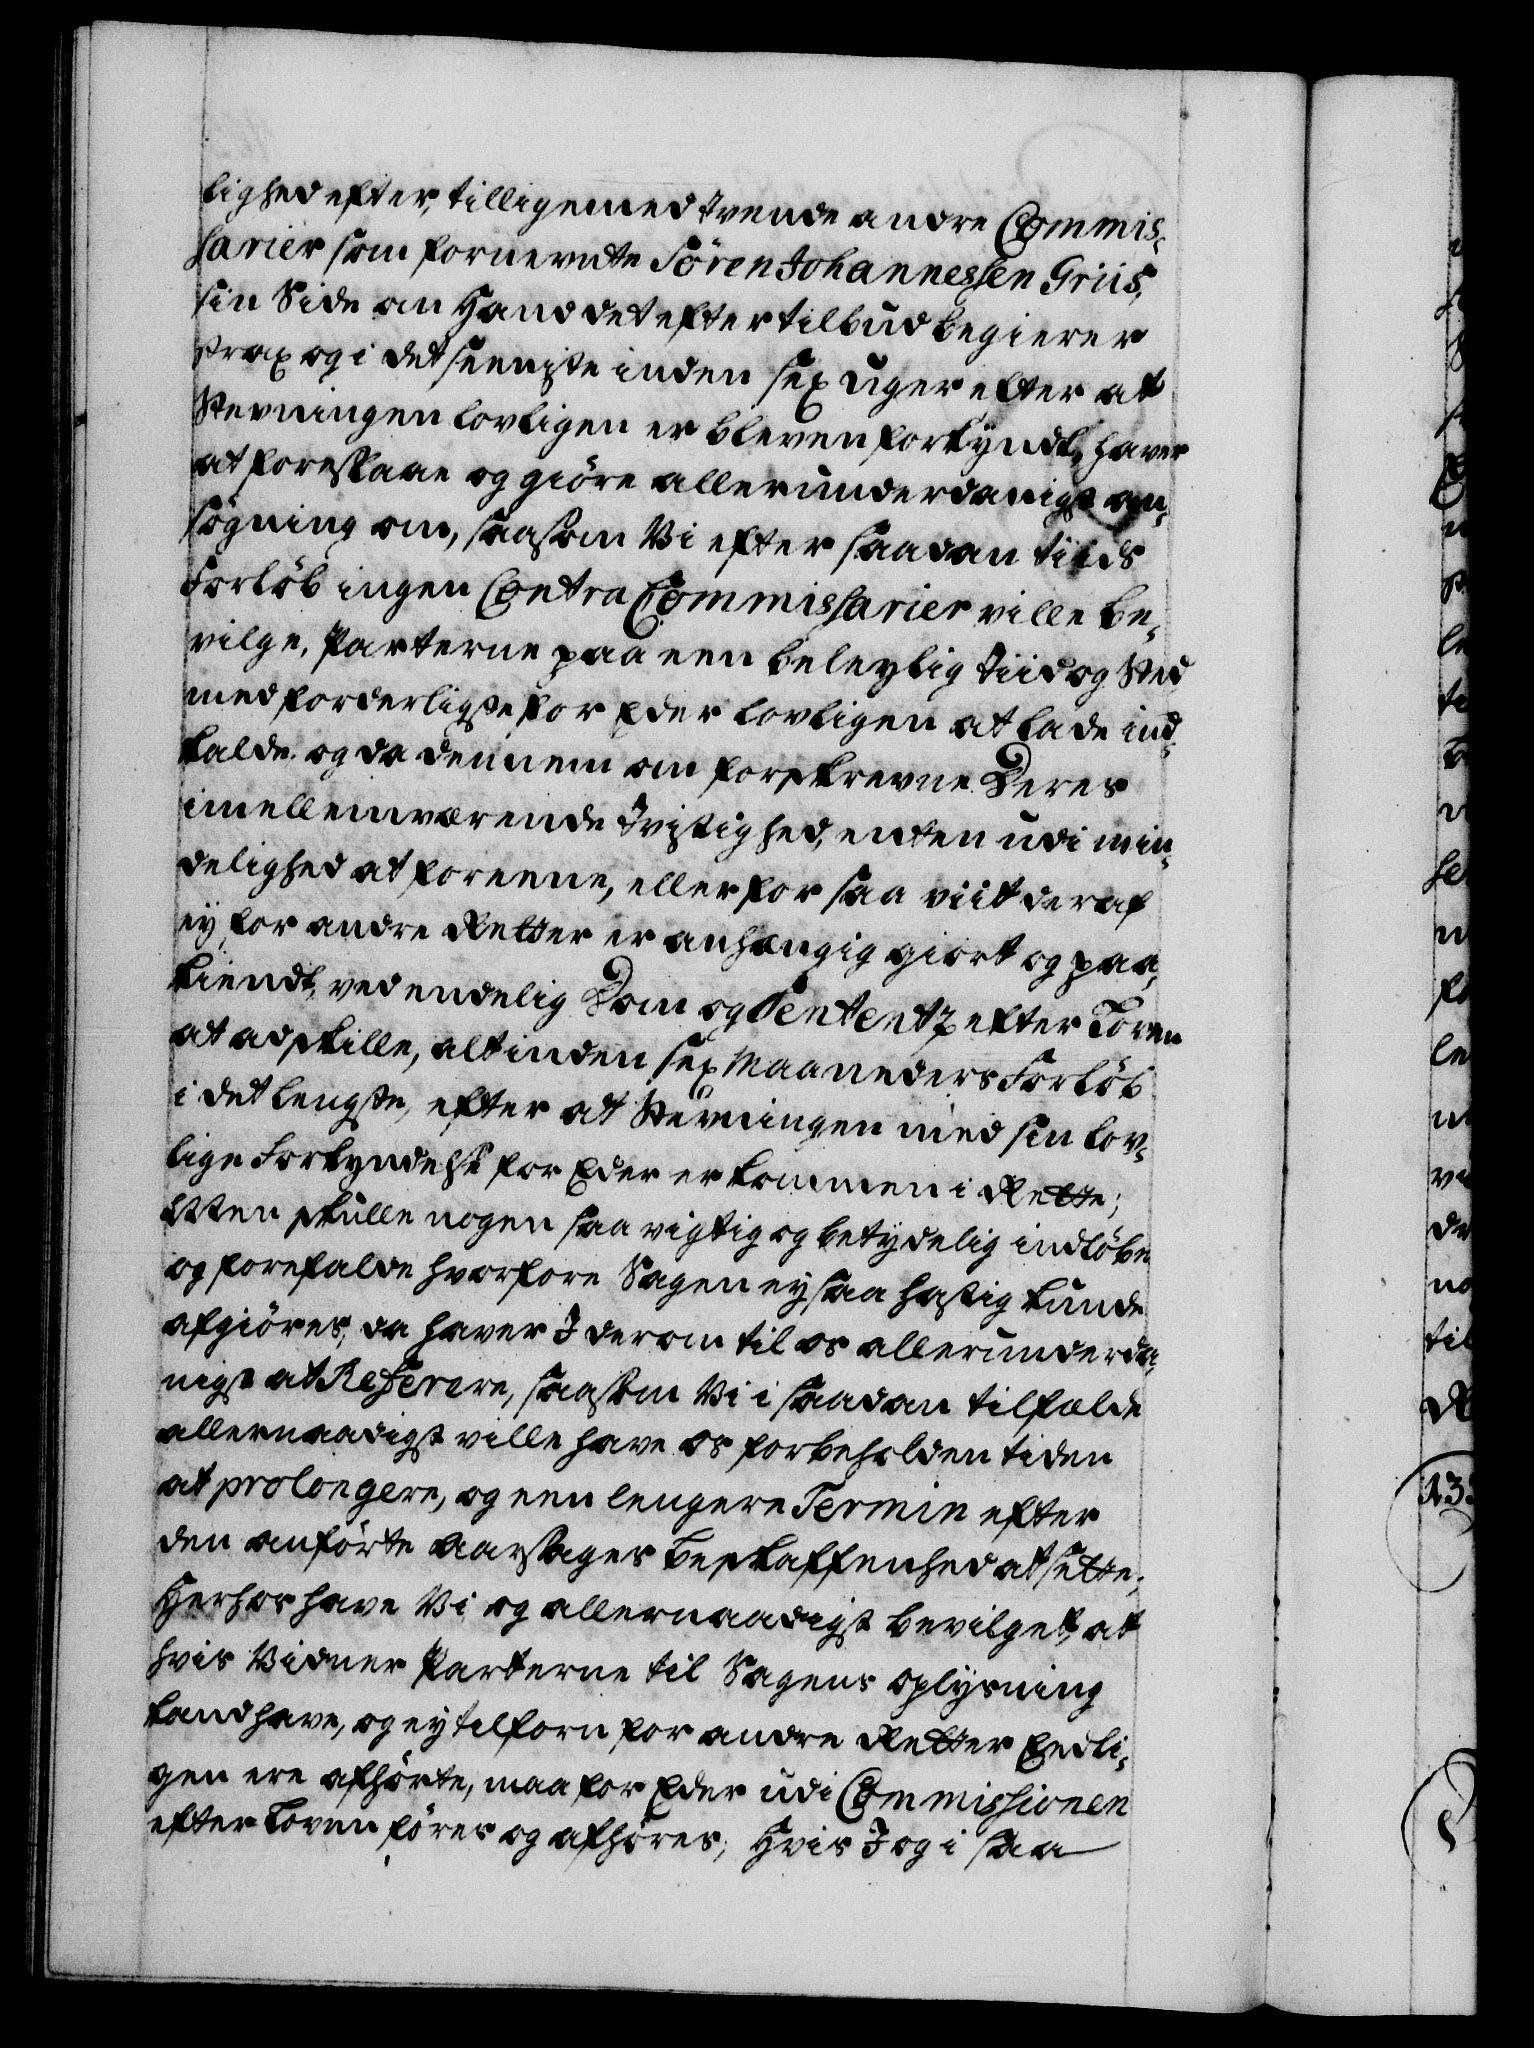 lighed efter, tilligemed tvende andre Commis-
sarier som fornevnte Sören Johannessen Griis,
sin Side om Hand det efter tilbud begierer
strax og i det seeniste inden sex uger efter at
Stevningen lovligen er bleven forkyndt, haver
at foreslaae og giöre allerunderdanigst an-
sögning om, saasom Vi efter saadan tiids
Forlöb ingen Contra Commissarier ville be-
vilge, Parterne paa een beleylig Tiid og Sted
med forderligste for Eder lovligen at lade ind-
kalde. og da dennem om forskrevne Deres
imellemværende Tvistighed, enten udi min-
delighed at foreene, eller for saa viit deraf
ey for andre Retter er anhængig giort og paa-
kiendt, ved endelig Dom og Sententz efter Loven
at adskille, alt inden sex Maaneders Forlöb
i det lengste, efter at Stevningen med sin lov-
lige Forkyndelse for Eder er kommen i Rette;
Men skulle nogen saa vigtig og betydelig indlöbe
og forefalde hvorfore Sagen ey saa hastig kunde
afgiöres, da haver I derom til os allerunderda-
nigst at Referere, saasom Vi i saadan tilfælde
allernaadigst ville have os forbeholden tiden
at prolongere, og een lengere Termin efter
den anförte Aarsages beskaffenhed at sette;
Herhos have Vi og allernaadigst bevilget, at
hvis Vidner Parterne til Sagens oplysning
kand have, og ey tilforn for andre Retter Eedli-
gen ere afhörte, maa for Eder udi Commissionen
efter Loven föres og afhöres; Hvis I og i saa